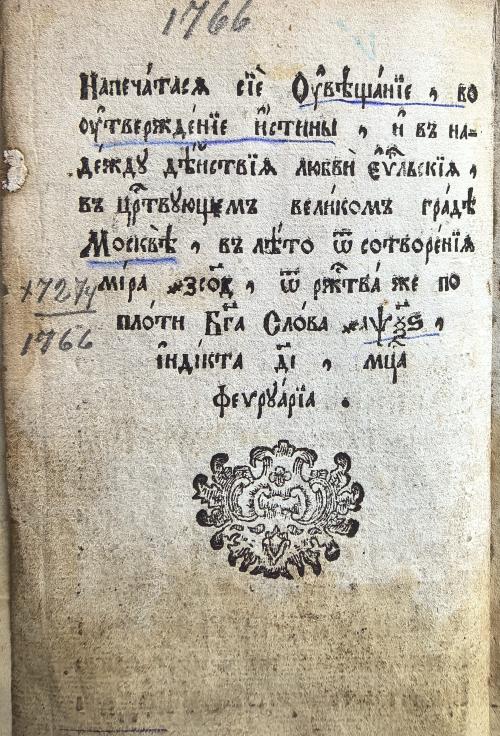 1766
Напеча́тася сїѐ Оу҆вѣща́нїе , во
оу҆твержде́нїе и҆́стины , и҆ въ на-
де́жду дѣ́йствїѧ любвѝ є҆ѵⷢ҇льскїѧ ,
въ црⷭ҇твующемъ вели́комъ гра́дѣ
Москвѣ̀ , въ лѣ́то ѿ сотворе́нїѧ
мі́ра ҂зсо҃д , ѿ ржⷭ҇тва́ же по
пло́ти Бг҃а Сло́ва ҂аѱ҃ѯѕ ,
і҆нді́кта д҃і , мцⷭ҇а
феѵруа́рїа .
7274
1766